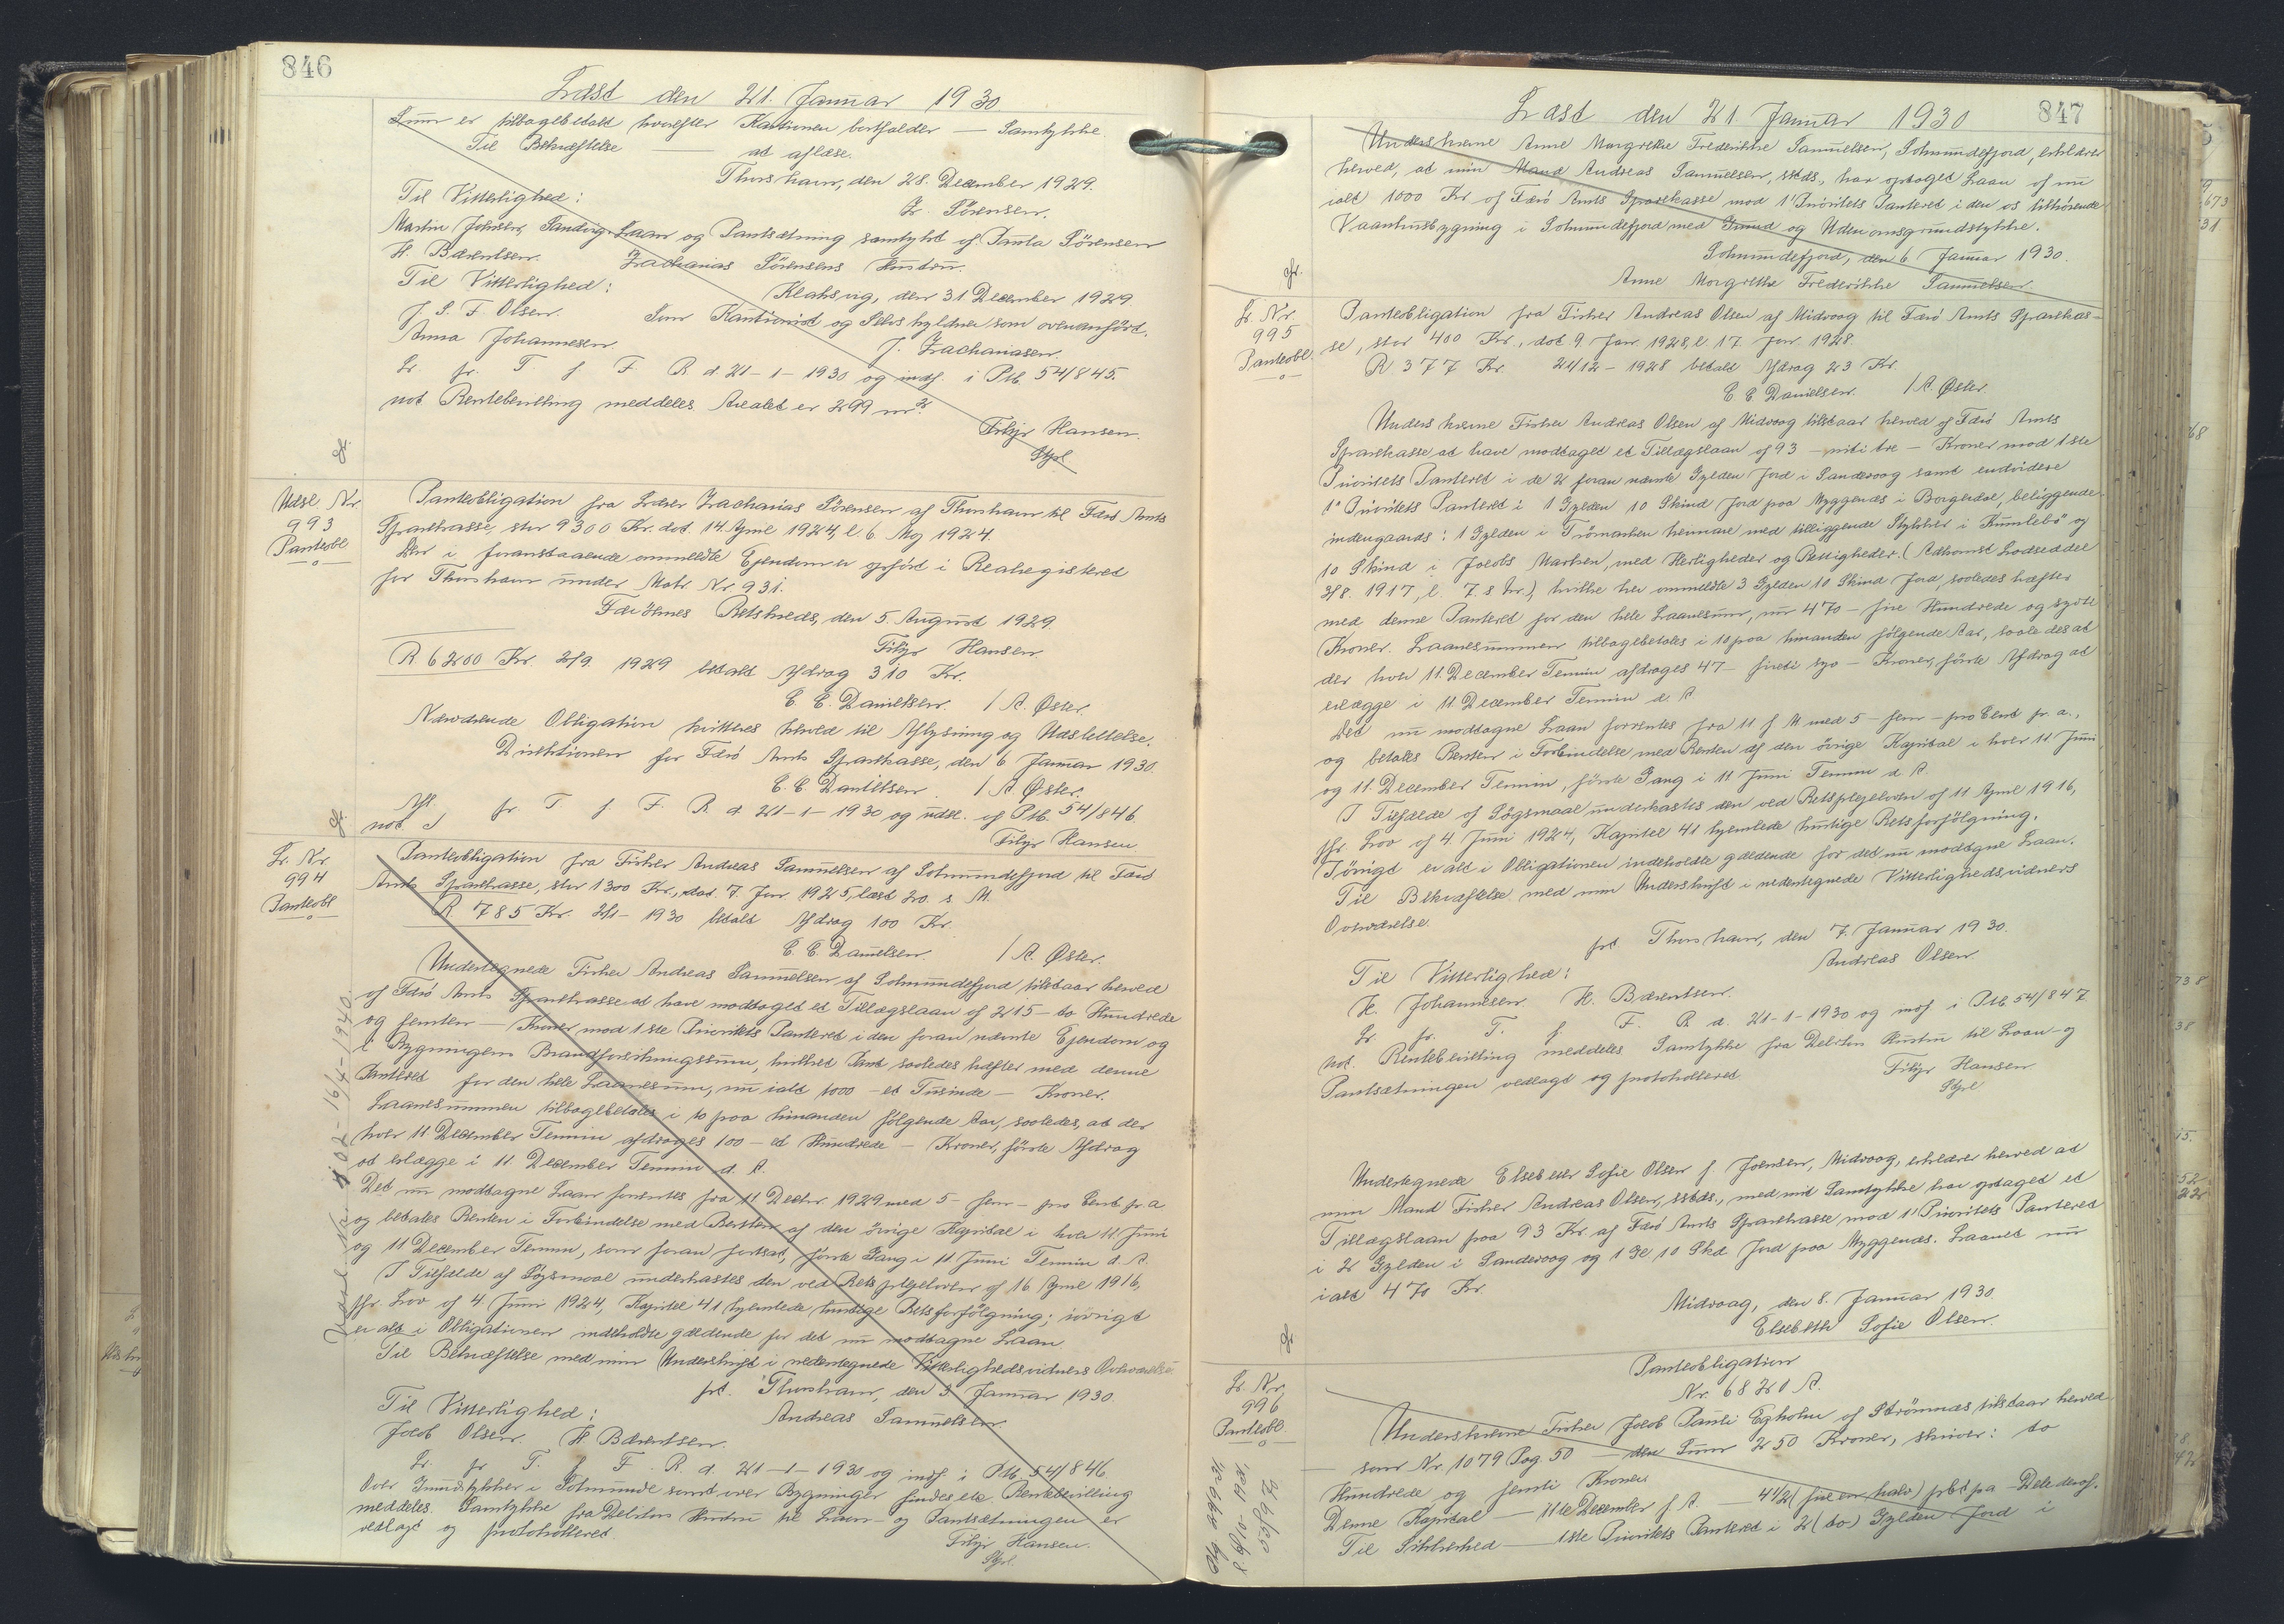 846
Læst den 21. Januar 1930
Sum er tilbagebetalt hvorefter Kautionen bortfalder — Samtykke
Til Bekræftelse — at aflæse.
Thorshavn, den 28. December 1929.
Til Vitterlighed:
Z. Sörensen.
Martin Johnsen, Sandvig. Laan og Pantsætning samtykt af Paula Sörensen
H. Bærentsen. Zacharias Sörensens Hustru.
Til Vitterlighed: Klaksvig, den 31 December 1929.
J. S. F. Olsen. Som Kautionist og Selvskyldner som ovenanförd.
Anna Johannesen. J. Zachariasen.
Lr. fr. T. f. F. R. d. 21-1-1930 og indf. i Ptb. 54/845.
not Rentebevilling meddeles. Arealet er 299 m².
Filip Hansen.
Stpl
cfr.
Udsl. Nr.
993
Panteobl
Panteobligation fra Lærer Zacharias Sörensen af Thorshavn til Færö Amts
Sparekasse, stor 9300 Kr. dat. 14. April 1924, l. 6. Maj 1924.
Den i foranstaaende ommeldte Ejendom er opført i Realregisteret
for Thorshavn under Matr. Nr. 931.
Færöernes Retskreds, den 5. August 1929.
Filip Hansen.
R 6200 Kr. 2/9. 1929 betalt Afdrag 310 Kr.
E. E. Danielsen. / A. Øster.
Nærværende Obligation kvitteres herved til Aflysning og Udslettelse.
Direktionen for Færö Amts Sparekasse, den 6 Januar 1930.
E. E. Danielsen. / A. Øster.
Afl. fr T. f. F. R. d. 21-1-1930 og udsl. af Ptb. 54/846.
not.
Filip Hansen.
cfr.
Lr. Nr.
994
Panteobl
Panteobligation fra Fisker Andreas Samuelsen af Solmundefjord til Færö
Amts Sparekasse, stor 1300 Kr., dat. 7. Jan 1925, læst 20. s. M.
R. 785 Kr. 2/1-1930 betalt Afdrag 100 Kr.
E. E. Danielsen. / A. Øster.
Undertegnede Fisker Andreas Samuelsen af Solmundefjord tilstaar herved
af Færö Amts Sparekasse at have modtaget et Tillægslaan af 215 — to Hundrede
og femten — Kroner mod 1ste Prioritets Panteret i den foran nævnte Ejendom og
i Bygningens Brandforsikringssum, hvilket Pant saaledes hæfter med denne
Panteret for den hele Laanesum, nu ialt 1000 — et Tusinde — Kroner.
Laanesummen tilbagebetales i 10 paa hinanden følgende Aar, saaledes, at der
hver 11 December Termin afdrages 100 — et Hundrede — Kroner, första Afdrag
at erlægge i 11. December Termin d. A.
Det nu modtagne Laan forrentes fra 11 Decbr. 1929 med 5 — fem — pro Cent p. a
og betales Renten i Forbindelse med Renten af den övrige Kapital i hver 11 Juni
og 11 December Termin, som foran fortsat, förste Gang i 11. Juni Termin d. A.
I Tilfælde af Sögsmaal underkastes den ved Retsplejeloven af 16 April 1916,
jfr. Lov af 4. Juni 1924, Kapitel 41 hjemlede hurtige Retsforfølgning; iövrigt
er alt i Obligationen indeholdte gældende for det nu modtagne Laan
Til Bekræftelse med min Underskrift i nedentegnede Vitterlighedsvidners Overværelse
pt. Thorshavn, den 3. Januar 1930.
Til Vitterlighed: Andreas Samuelsen.
Jacob Olsen. H Bærentsen.
Lr. fr T. f. F. R. d. 21-1-1930 og indf. i Ptb. 54/846.
Over Grundstykker i Solmunde samt over Bygninger findes Rentebevilling
meddeles. Samtykke fra Debitors Hustru til Laan- og Pantsætningen er
vedlagt og protokolleret.
Filip Hansen.
Stpl.
Udsl. Nr. 102 - 16/4-1940.
847
Læst den 21. Januar 1930
Underskrevne Anne Margrethe Frederikke Samuelsen, Solmundefjord, erklærer
herved, at min Mand Andreas Samuelsen, sstds., har optaget Laan af nu
ialt 1000 Kr af Færö Amts Sparekasse mod 1' Prioritets Panteret i den os tilhörende
Vaaningsbygning i Solmundefjord med Grund og Udenomsgrundstykke.
Solmundefjord, den 6 Januar 1930.
Anne Margrethe Frederikke Samuelsen.
cfr.
Lr. Nr.
995
Panteobl
Panteobligation fra Fisker Andreas Olsen af Midvaag til Færö Amts Sparekas-
se, stor 400 Kr., dat. 9. Jan 1928, l. 17. Jan. 1928.
R 377 Kr. 21/12-1928 betalt Afdrag 23 Kr.
E. E. Danielsen. / A. Øster.
Underskrevne Fisker Andreas Olsen af Midvaag tilstaar herved af Færö Amts
Sparekasse at have modtaget et Tillægslaan af 93 — niti tre — Kroner mod 1ste
Prioritets Panteret i de 2 foran nævnte Gylden Jord i Sandevaag samt endvidere
1' Prioritets Panteret i 1 Gylden 10 Skind Jord paa Myggenæs i Borgerdal, beliggende
indengaards: 1 Gylden i Trömarken hermare med tilliggende Stykker i Kumlebö og
10 Skind i Jacobs Marken, med Herligheder og Rettigheder. (Adkomst Lodseddel
3/8. 1917, l. 7. s Mr.), hvilke her ommeldte 3 Gylden 10 Skind Jord, saaledes hæfter
med denne Panteret for den hele Laanesum, nu 470 — fire Hundrede og sytti
Kroner. Laanesummen tilbagebetales i 10 paa hinanden følgende Aar, saaledes at
der hver 11. December Termin afdrages 47 — fireti syv — Kroner, förste Afdrag at
erlægge i 11. December Termin d. A
Det nu modtagne Laan forrentes fra 11 f. M med 5 — fem — pro Cent p. a.,
og betales Renten i Forbindelse med Renten af den övrige Kapital i hver 11 Juni
og 11 December Termin, förste Gang i 11 Juni Termin d. A.
I Tilfælde af Sögsmaal underkastes den ved Retsplejeloven af 11 April 1916,
jfr. Lov af 4. Juni 1924, Kapitel 41 hjemlede hurtige Retsforfölgning.
Iövrigt er alt i Obligationen indeholdte gældende for det nu modtagne Laan.
Til Bekræftelse med min Underskrift i nedentegnede Vitterlighedsvidners
Overværelse.
pt. Thorshavn, den 7. Januar 1930.
Til Vitterlighed: Andreas Olsen
K. Johannesen. H. Bærentsen.
Lr. fr. T. f. F. R. d. 21-1-1930 og indf. i Ptb. 54/847
not. Rentebevilling meddeles Samtykke fra Debitors Hustru til Laan- og
Pantsætningen vedlagt og protokolleret
Filip Hansen
Stpl
Undertegnede Elsebeth Sofie Olsen f. Joensen, Midvaag, erklærer herved at
min Mand Fisker Andreas Olsen, sstds., med mit Samtykke har optaget et
Tillægslaan paa 93 Kr. af Færö Amts Sparekasse mod 1' Prioritets Panteret
i 2 Gylden i Sandevaag og 1 Gl 10 Skd Jord paa Myggenæs. Laanet nu
ialt 470 Kr.
Midvaag, den 8. Januar 1930.
Elsebeth Sofie Olsen.
cfr.
Lr. Nr.
996
Panteobl.
Panteobligation
Nr. 68 21 A.
Underskrevne Fisker Jacob Pauli Egholm af Strömnæs tilstaar herved
som Nr. 1079 Pag 50 — den Sum 250 Kroner, skriver: to
Hundrede og femti Kroner
Denne Kapital — 11te December f. A. — 4½ (fire en halv) pct pa — Dele deraf.
Til Sikkerhed — 1ste Prioritets Panteret i 2 (to) Gylden Jord i
55/972